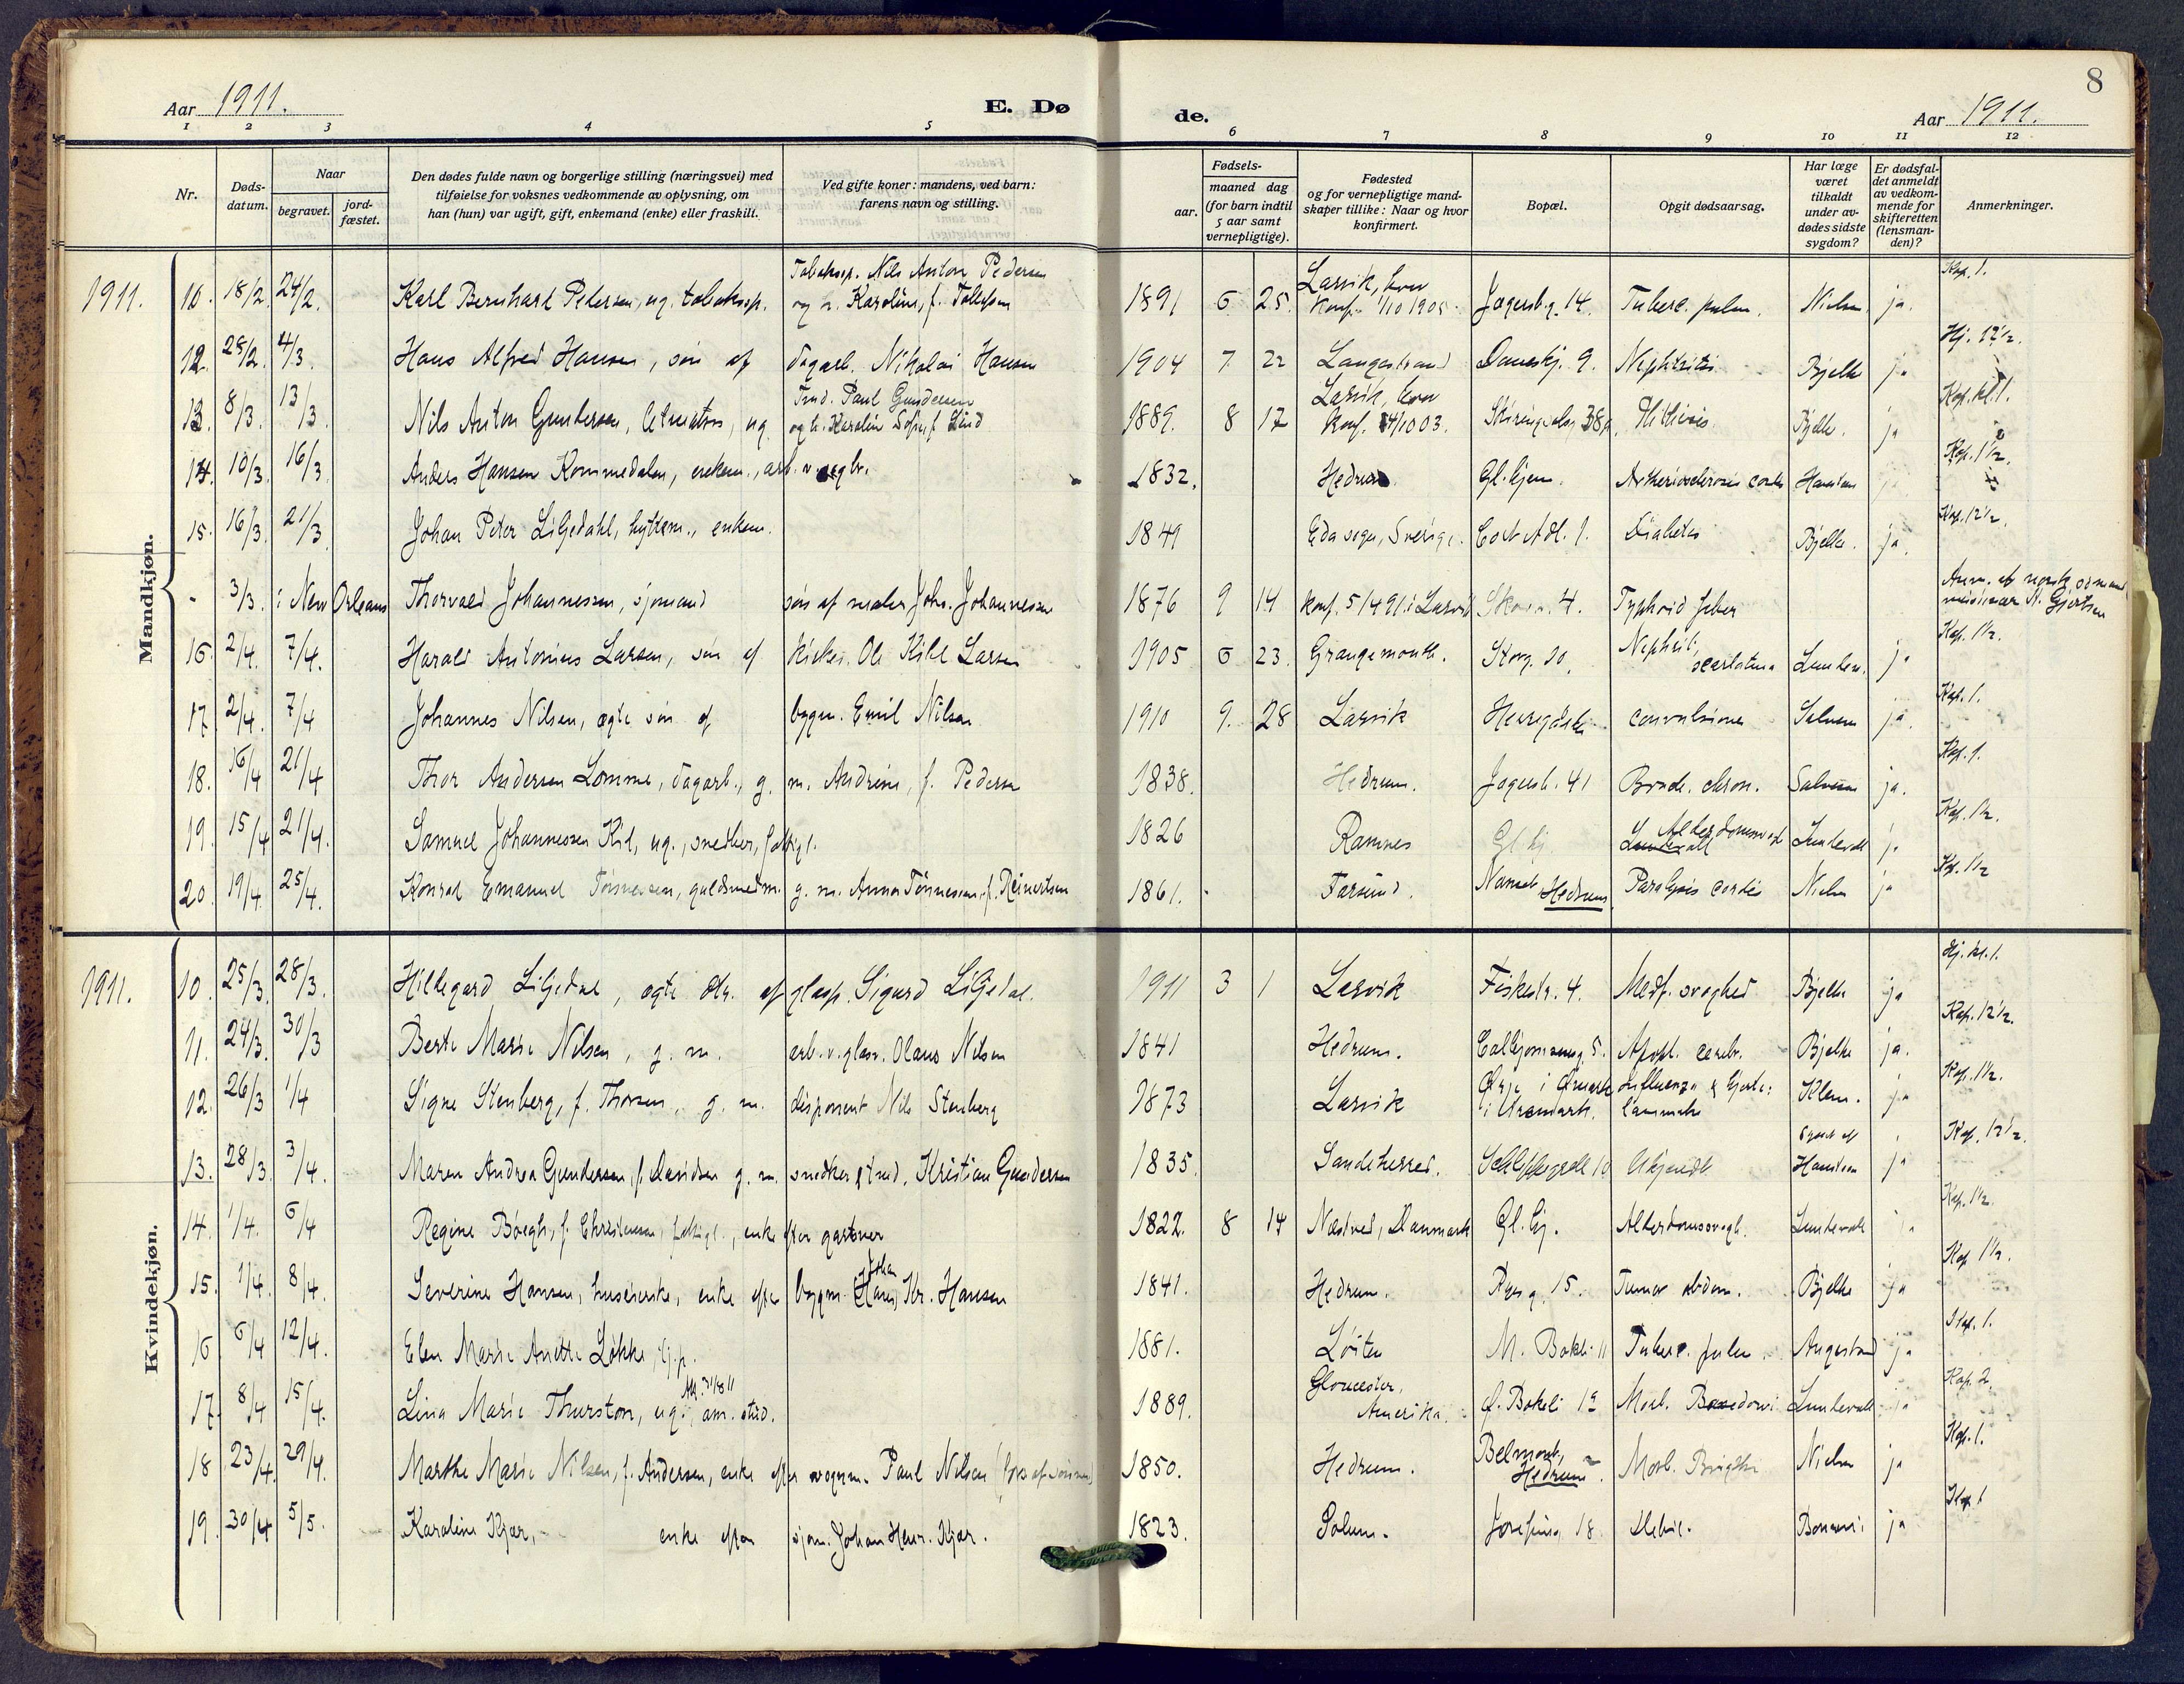 8
Aar 1911. E. Dø de. Aar 1911.
1 2 3 4 5 6 7 8 9 10 11 12
Nr.
Døds-
datum.
Naar
begravet.
jord-
fæstet.
Den dødes fulde navn og borgerlige stilling (næringsvei) med
tilføielse for voksnes vedkommende av oplysning, om
han (hun) var ugift, gift, enkemand (enke) eller fraskilt.
Ved gifte koner: mandens, ved barn:
farens navn og stilling.
Fødsels-
aar.
maaned dag
(for barn indtil
5 aar samt
vernepligtige).
Fødested
og for vernepligtige mand-
skaper tillike: Naar og hvor
konfirmert.
Bopæl.
Opgit dødsaarsag.
Har læge
været
tilkaldt
under av-
dødes sidste
sygdom?
Er dødsfal-
det anmeldt
av vedkom-
mende for
skifteretten
(lensman-
den)?
Anmerkninger.
Mandkjøn.
1911. 10. 18/2. 24/2. Karl Bernhard Pedersen, ug. tobakssp. Tobaksp. Nils Anton Pedersen og h. Karoline, f. Tollefsen 1891 6 25. Larvik, konf. 1/10 1905. Jegersbg. 14. Tuberc. pulm. Nielsen ja. Kap. 1.
12. 28/2. 4/3. Hans Alfred Hansen, søn af dagarb. Nikolai Hansen 1904 7 22 Langestrand Daneskj. 9. Nephritis Bjelke ja Hj. 12 1/2.
13. 8/3. 13/3. Nils Anton Gundersen, ug. Paul Gundersen og h. Karoline Sofie f. Lind 1889. 8 17 Larvik, konf. 4/10 03. Bjelke. ja Kap. kl. 1.
14. 10/3. 16/3. Anders Hansen Kommedalen, enkem., arb. 1832. Hedrum Gl. hjem. Artheriosclerosis cordis Kap. 1 1/2.
15. 16/3. 21/3. Johan Peter Liljedahl, hyttem., enkem. 1849 Eda sogn, Sverige. Diabetes Bjelke. ja. Kap. 12 1/2.
- 3/3. i New Orleans Thorvald Johannessen, sjømand søn af maler Johs. Johannessen 1876 9 14 konf. 5/4 91. i Larvik 4. Typhoid feber Anm. af norsk sømandsmissionær
16. 2/4. 7/4. Harald Antonius Larsen, søn af Ole Kihl Larsen 1905 6 23. Grangemouth. Storg. 20. Nephrit. scarlatina ja Kap. 1 1/2.
17. 2/4. 7/4 Johannes Nilsen, ægte søn af bygm. Emil Nilsen 1910 9. 28 Larvik convulsiones ja. Kap. 1.
18. 16/4 21/4 Thor Andersen Lomme, dagarb., g. m. Andrine, f. Pedersen 1838. Hedrum. Jegersb. 41 chron. Salvesen ja. Kap. 1.
19. 15/4 21/4. Samuel Johannessen Kil, ug., snedker, fattigl. 1826 Ramnes Gl. hj. Lundevall ja Kap. 1 1/2.
20. 19/4. 25/4. Konrad Emanuel Tønnessen, guldsmedm. g. m. Anna Tønnessen f. Reinertsen 1861. Farsund. Nanset Hedrum. Paralysis cordis Nielsen ja Kap. 1 1/2
Kvindekjøn.
1911. 10. 25/3. 28/3. Hildegard Liljedal, ægte dtr. af glasp. Sigurd Liljedal. 1911 3 1 Larvik Fiskestr. 4. Medf. svaghed Bjelke ja Hj. kl. 1.
11. 24/3. 30/3 Berte Marie Nilsen, g. m. arb. v. glasv. Olaus Nilsen 1841 Hedrum. Apopl. cerebr. Bjelke ja. Kap. 12 1/2.
12. 26/3 1/4 Signe Stenberg, f. Thorsen, g. m. disponent Nils Stenberg 1873 Larvik Ørje i Influenza & hjerte: lammelse Klem. ja Kap. 1 1/2.
13. 28/3. 3/4. Maren Andrea Gundersen, f. Davidsen g. m. snedker Kristian Gundersen 1835. Sandeherred. Ukjendt ja Kap. 12 1/2.
14. 1/4. 6/4 Regine Børgh, f. Christensen, fattigl., enke efter gartner 1822. 8 14 Næstved, Danmark Gl. hj. Alderdomssvagh. Lundevall ja Kap. 1 1/2.
15. 1/4. 8/4. Severine Hansen, huseierske, enke efter bygm. (Hans) Johan Kr. Hansen 1841. Hedrum. 15. Tumor abdom. Bjelke ja Kap 1 1/2.
16 6/4 12/4. Elen Marie Anette Løkke, tj.p. 1881. Løiten M. Bøkeli 11 Tuberc. pulm. Augestad ja Kap. 1.
17. 8/4 15/4. Lina Marie Thurston, ug., am. stud. 1889. Gloucester, Amerika. Ø. Bøkeli 12 Morb. Basedowi Lundevall ja Kap. 2.
18 23/4. 29/4. Marthe Marie Nilsen, f. Andersen, enke efter vognm. Paul Nilsen (fors. af sønnen) 1850. Hedrum. Belmont, Hedrum. Morb. Brigthi Nielsen ja Kap. 1.
19. 30/4 5/5. Karoline Kjær, enke efter sjøm. Johan Henr. Kjær. 1823. Solum. 18. Debil. ja Kap 1